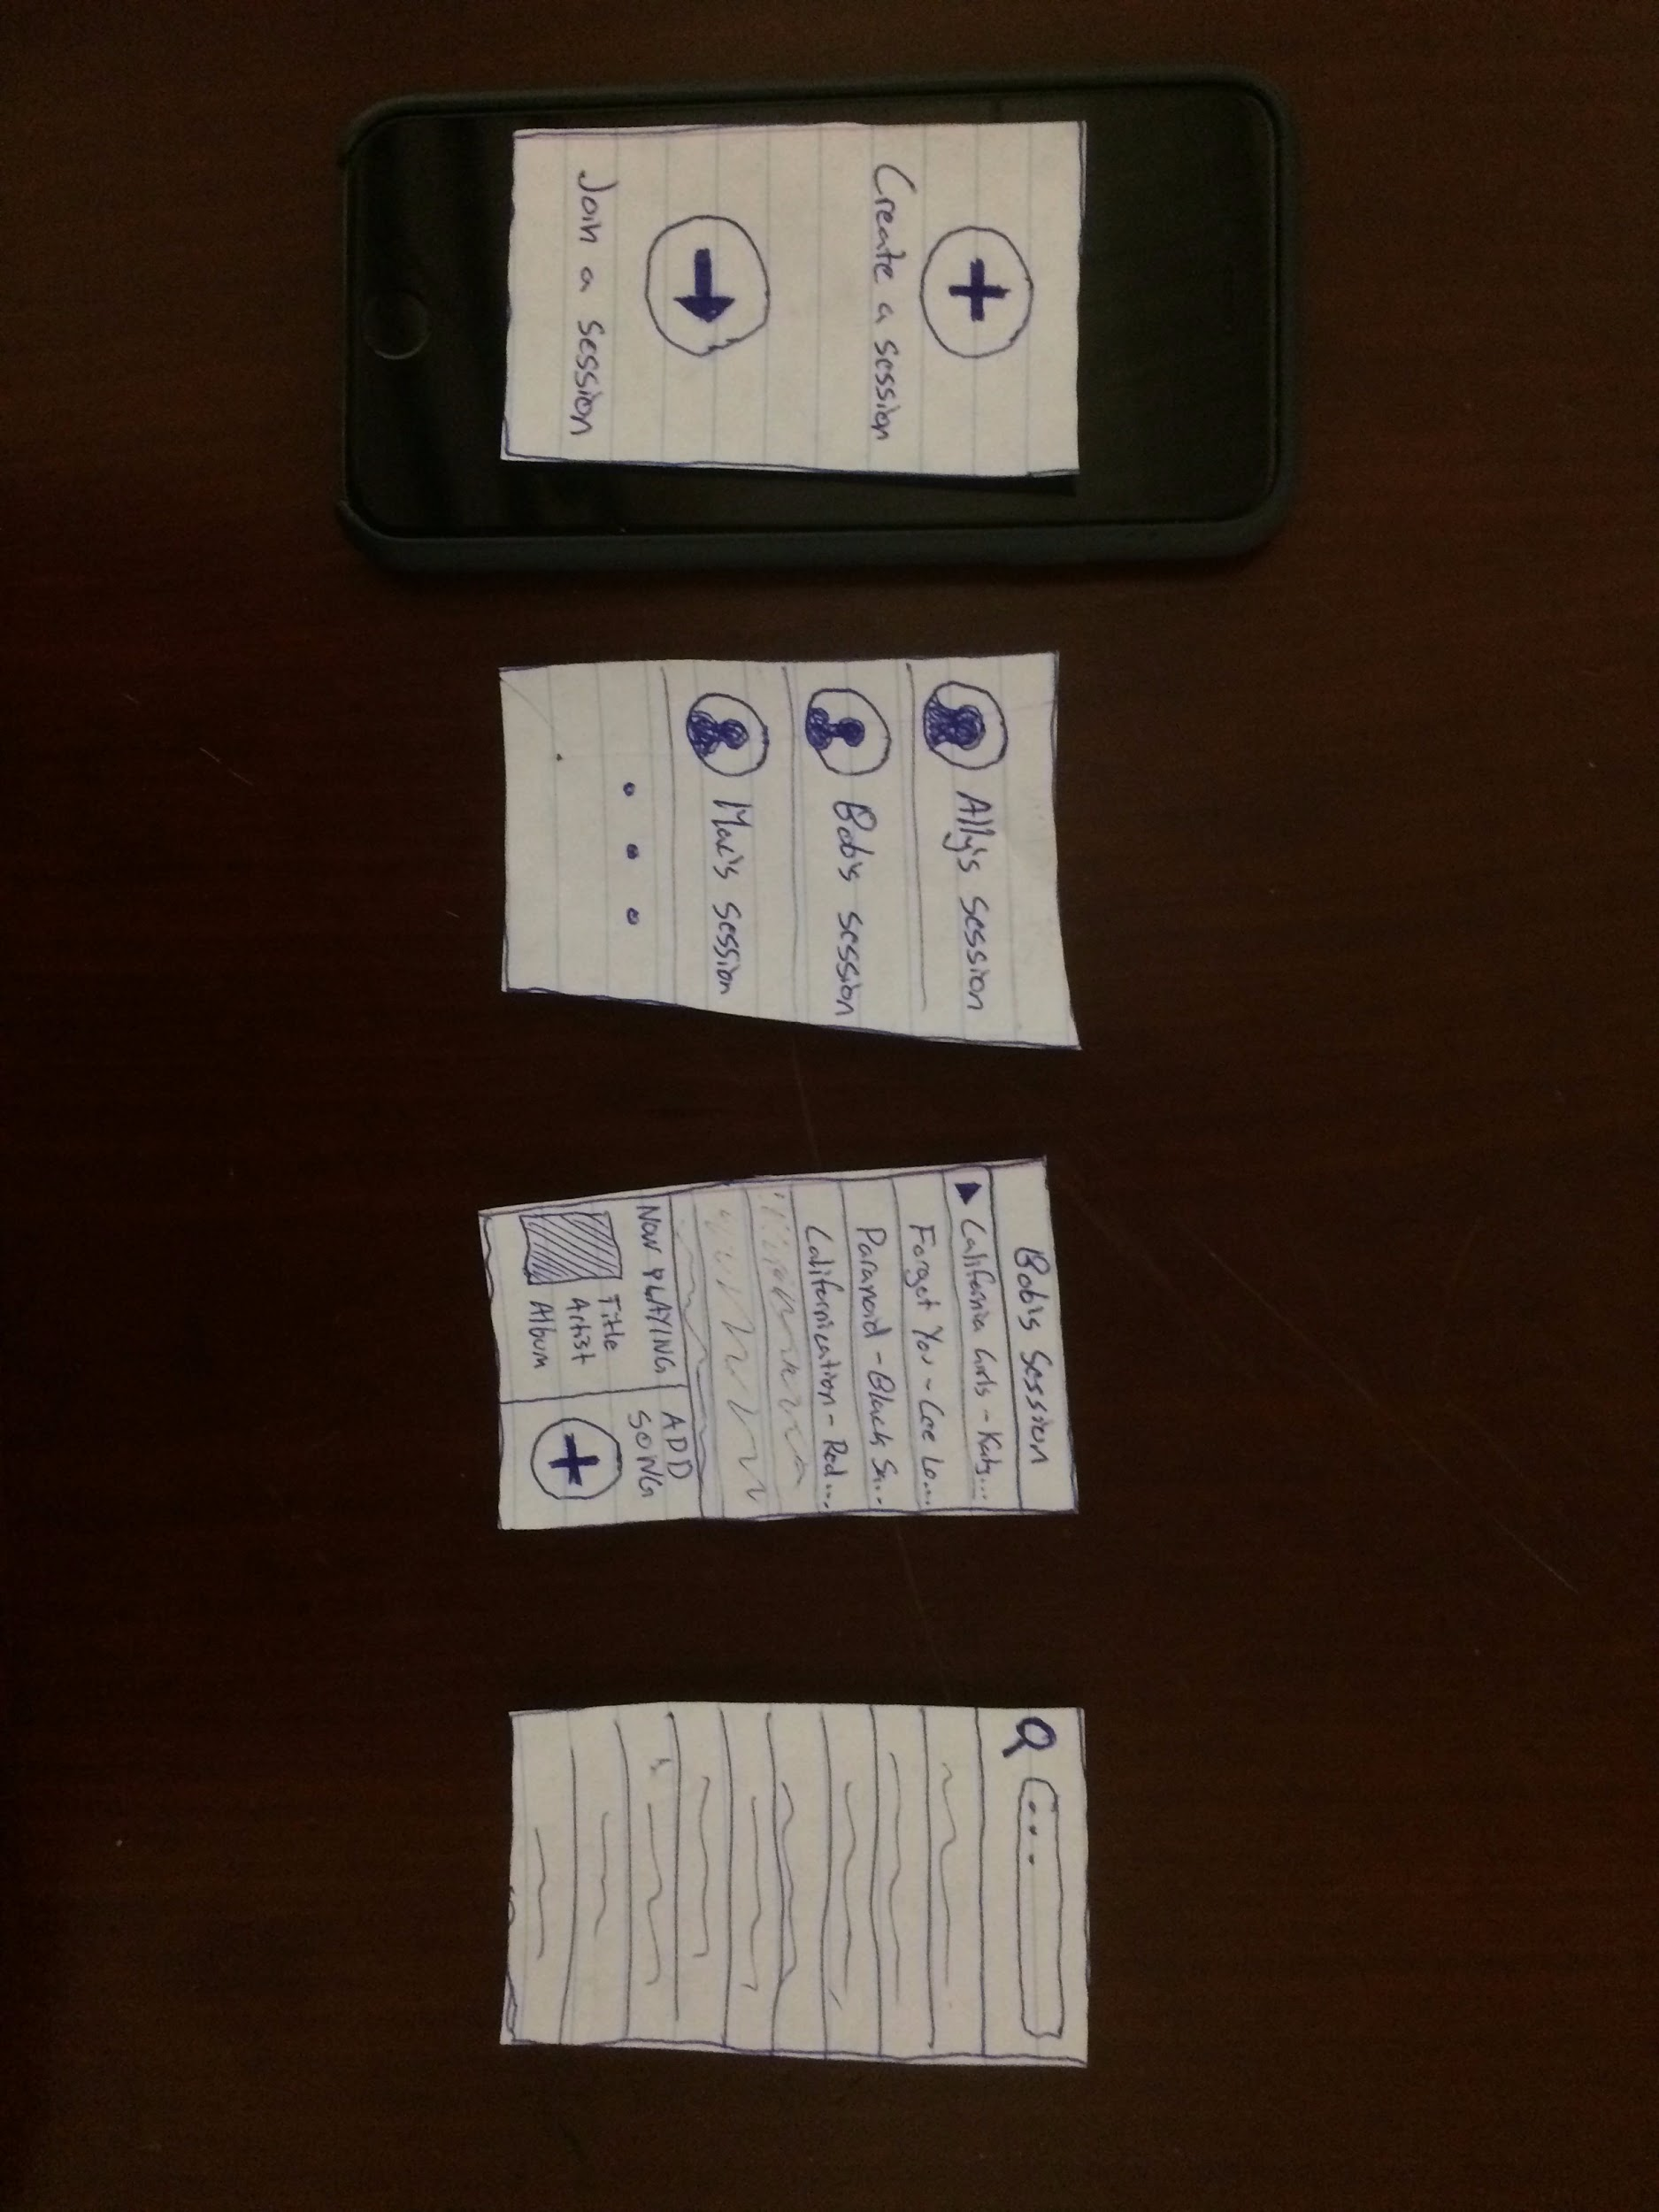 Create a session
Join a session
Ally's session
Bob's session
session
Bob's Session
California Girls - Katy...
Forget You - Cee Lo...
Paranoid - Black Sa...
Californication - Red...
NOW PLAYING
Title
Artist
Album
ADD
SONG
...